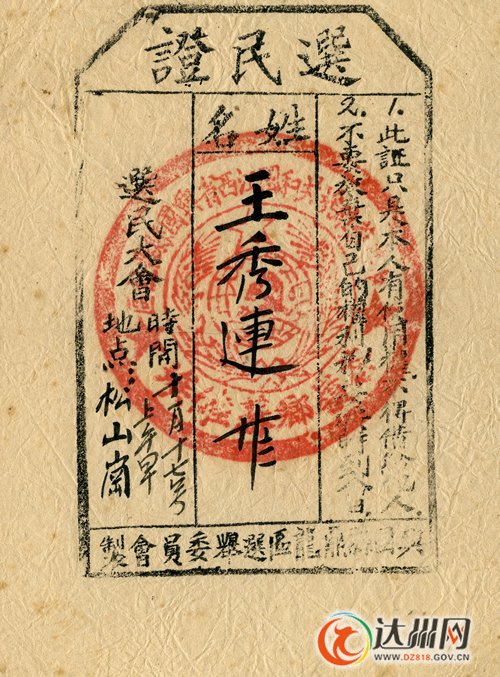 選民證
1.此証只是本人有得借給他人.
2.不要放棄自己的權利時到会.
姓名
王秀連 廿二
選民大會
時間:十一月十七号
上午早
地点:松山崗
龍區選舉委員會製
共和國江西省
达州网
WWW.DZ818.GOV.CN